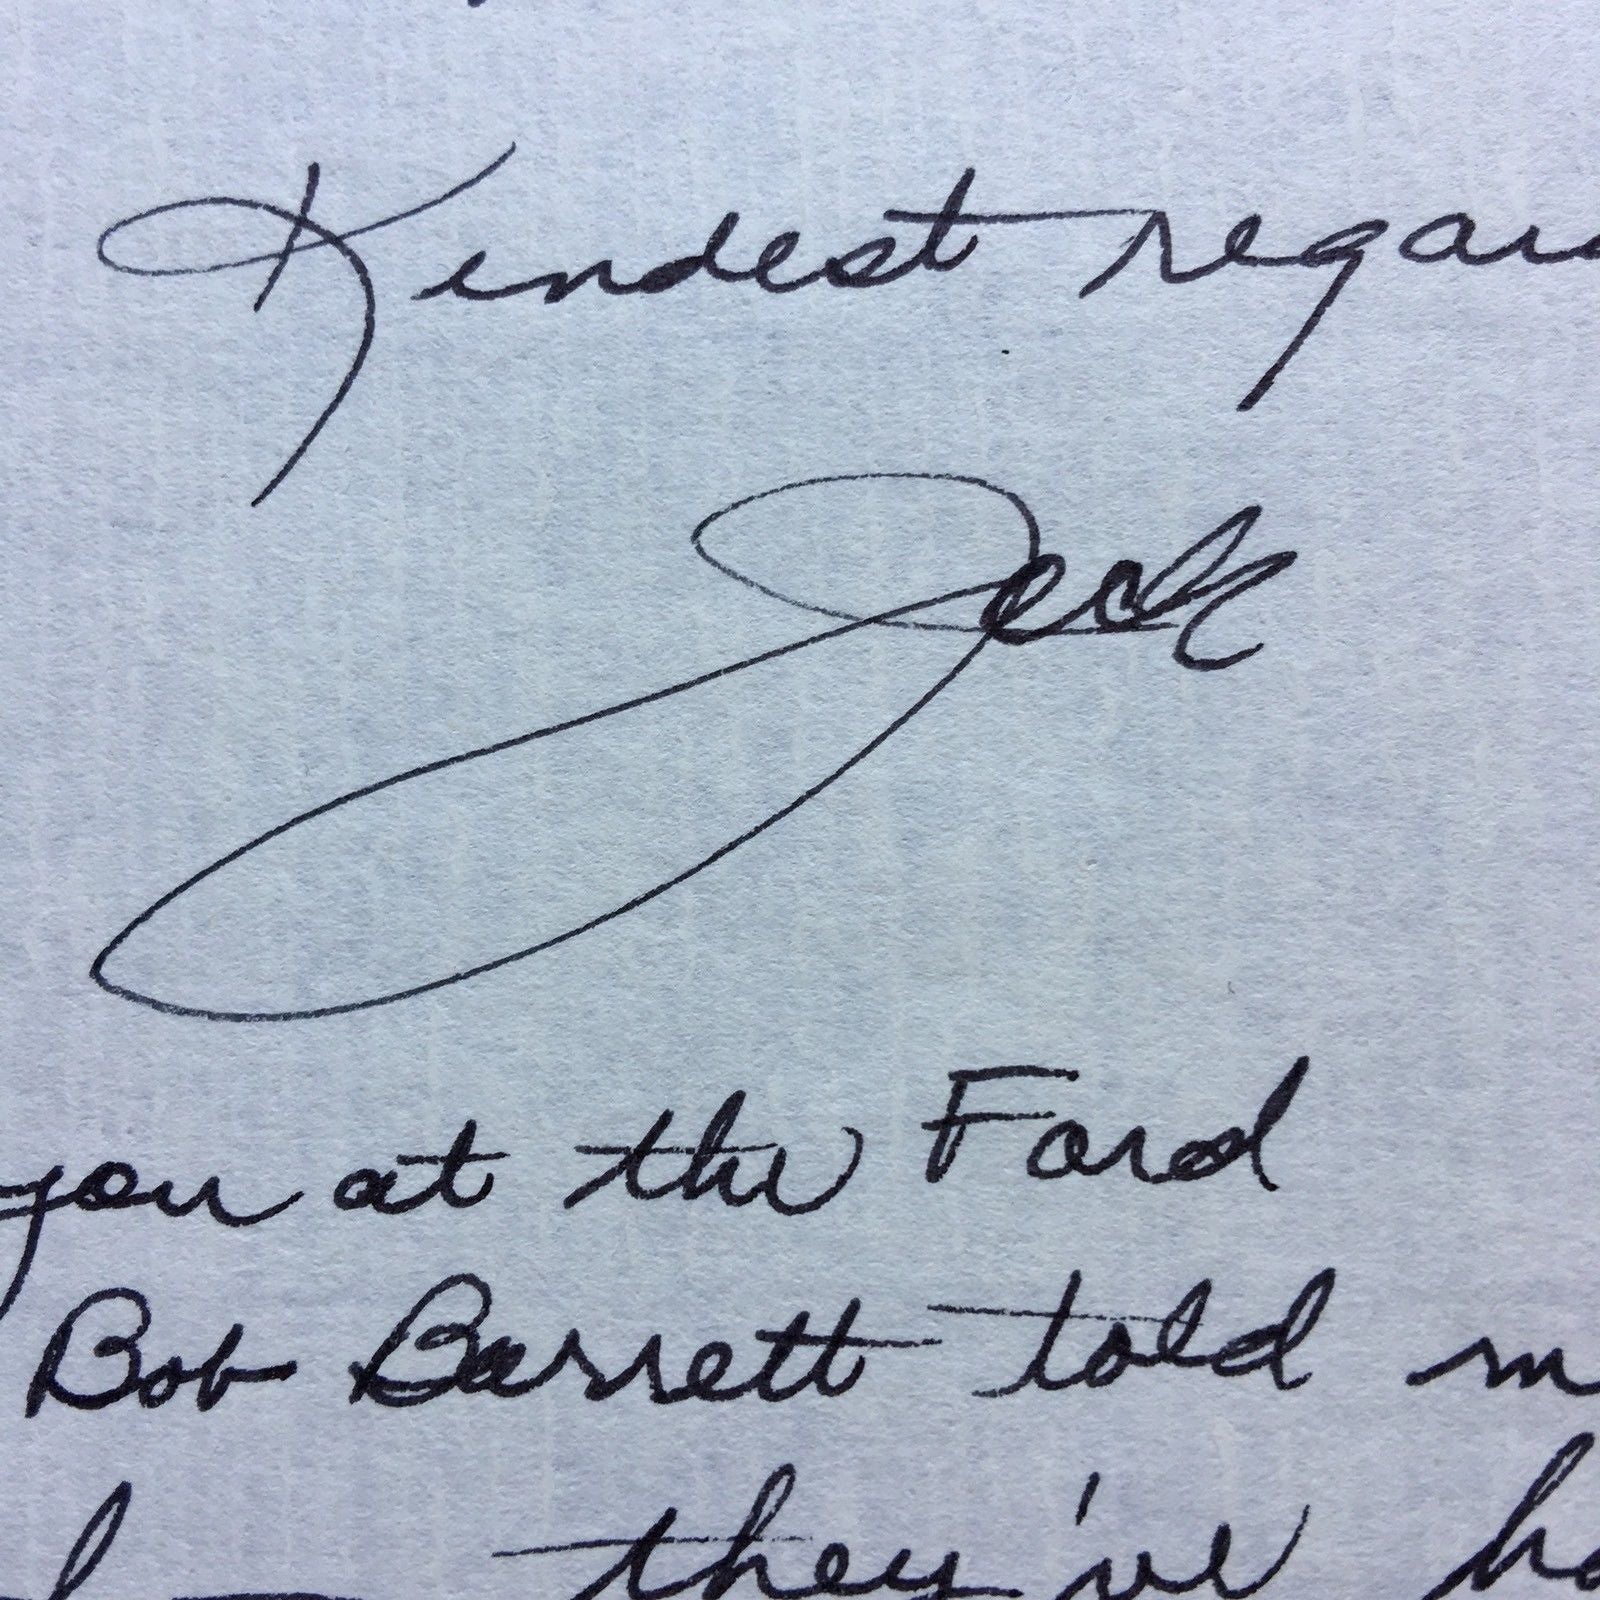 Kindest regar
Jack
you at the Ford
Bob Barrett told m
they've ha